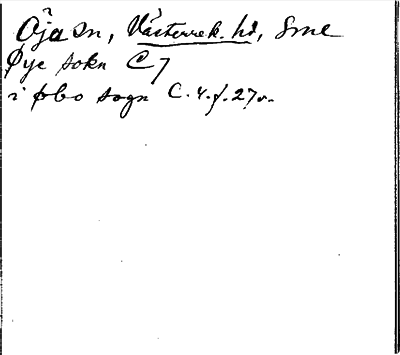 Öja sn, Västerrek. hd, Sme
Øye sokn C 7
i øbo sogn C. 4. f. 27v.